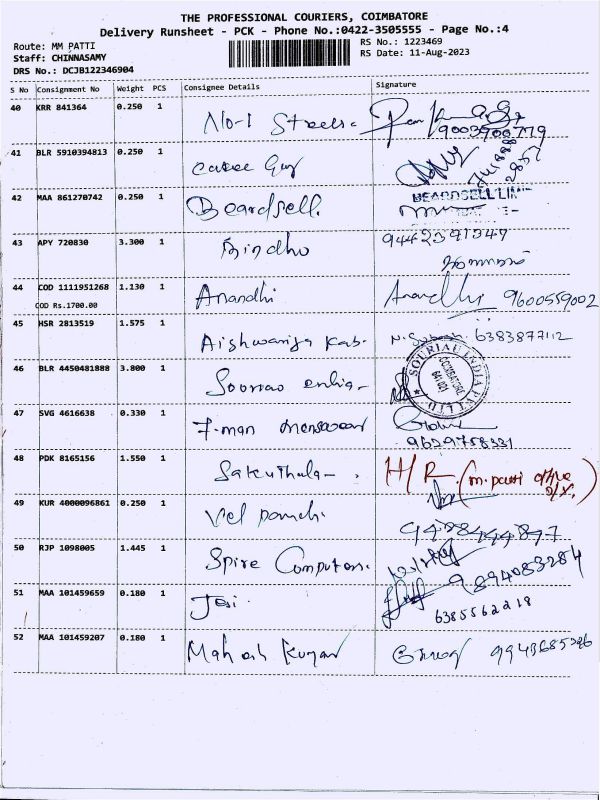 THE PROFESSIONAL COURIERS, COIMBATORE
Delivery Runsheet - PCK - Phone No.:0422-3505555 - Page No.:4
Route: MM PATTI
RS No.: 1223469
Staff: CHINNASAMY
RS Date: 11-Aug-2023
DRS No.: DCJB122346904
S No Consignment No Weight PCS Consignee Details Signature
40 KRR 841364 0.250 1 No-1 Steels
9003900779
41 BLR 5910394813 0.250 1
42 MAA 861270742 0.250 1 Beardsell
BEARDSELL LIM
43 APY 720830 3.300 1 Bindhu
44 COD 1111951268 1.130 1 Anandhi Anandhi 9600559002
COD Rs.1700.00
45 HSR 2813519 1.575 1 Aishwariya 6383877112
46 BLR 4450481888 3.800 1 Souriau India
SOURIAU INDIA PVT LTD
COIMBATORE
641 021
47 SVG 4616638 0.330 1 F-man menswear
9629758331
48 PDK 8165156 1.550 1 Sakuthala H/R (m. patti office
49 KUR 4000096861 0.250 1 Vel
9488444897
50 RJP 1098005 1.445 1 Spire Computers 9894083284
51 MAA 101459659 0.180 1 Jai
6385562218
52 MAA 101459207 0.180 1 Mahesh Kumar